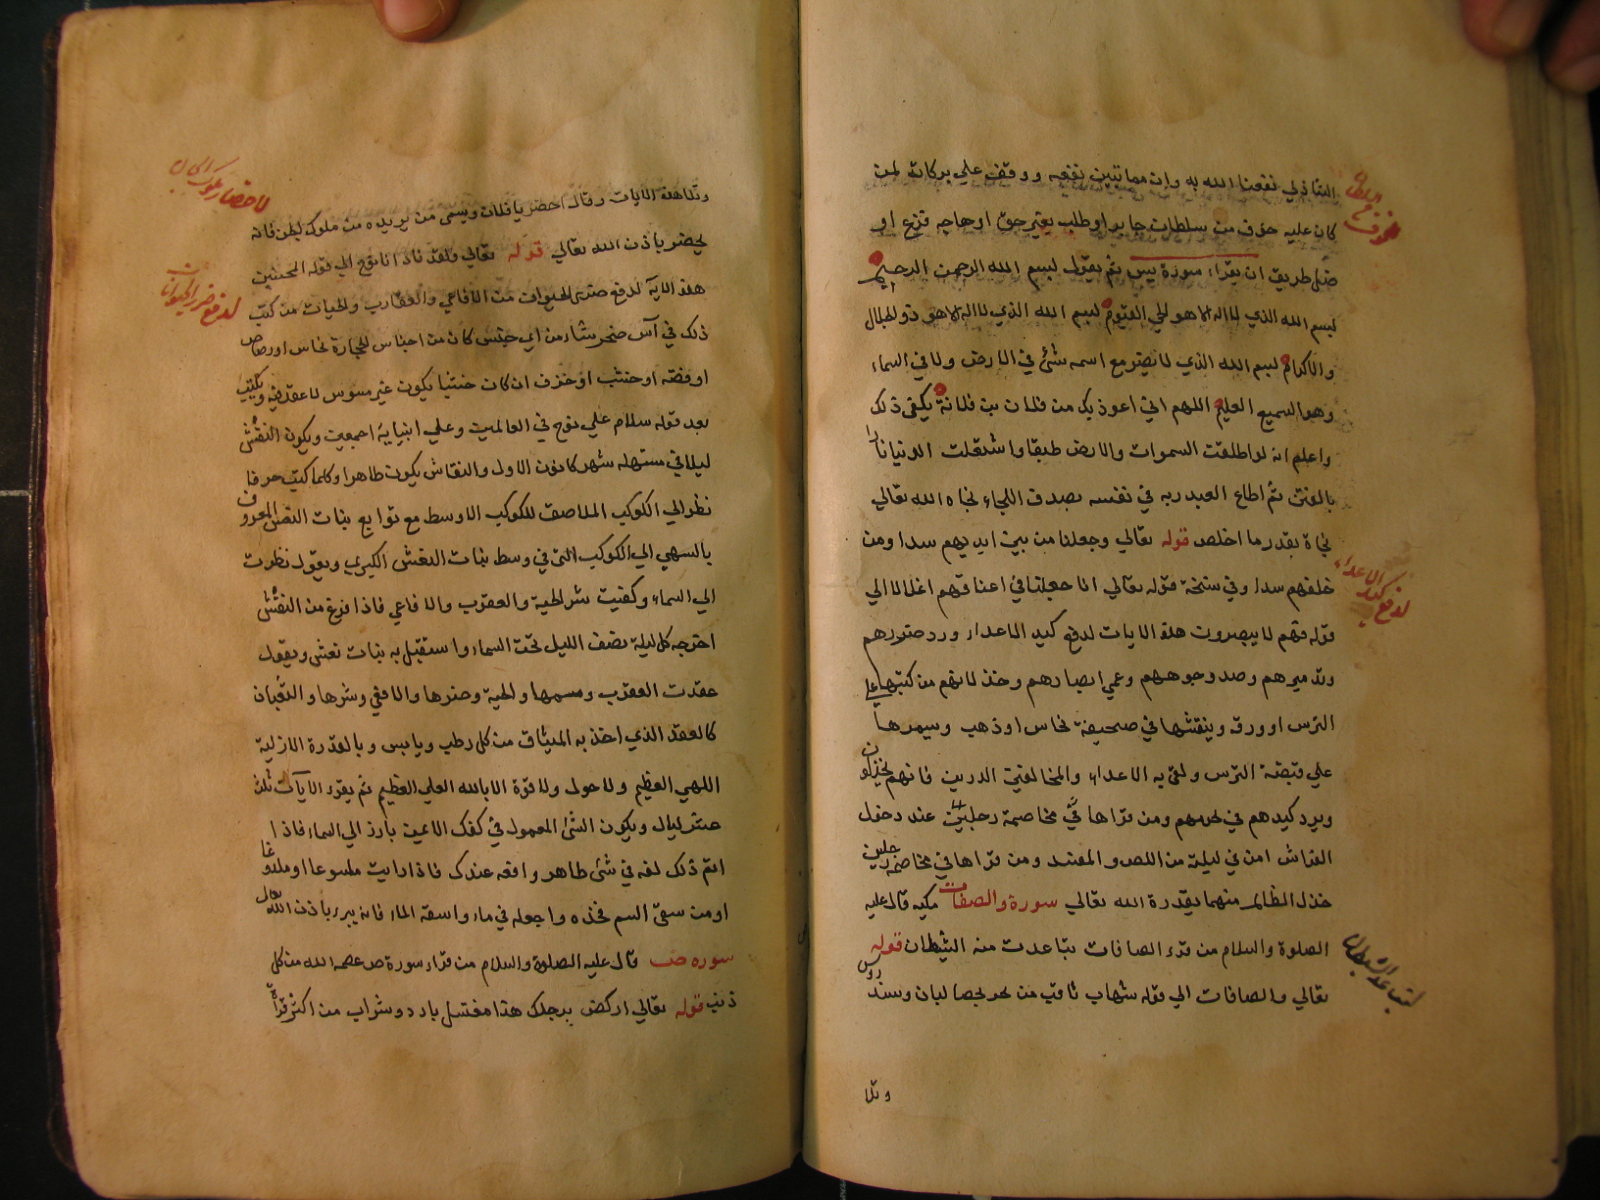 الشاذلي نفعنا الله به وان مما تبين نفعه ووقف علي بركاته لمن
كان عليه خوف من سلطان جاير او طلب بغير حق او حاجه فزع او
ضل طريق ان يقراء سورة يس ثم يقول بسم الله الرحمن الرحيم
بسم الله الذي لا اله الا هو الحي القيوم بسم الله الذي لا اله الا هو ذو الجلال
والاكرام بسم الله الذي لا يضر مع اسمه شئ في الارض ولا في السماء
وهو السميع العليم اللهم اني اعوذ بك من فلان بن فلانة يكفي ذلك
واعلم انه لو اطبقت السموات والارض طبقا واشتعلت الدنيا نارا
بالفتن ثم اطاع العبد ربه في نفسه بصدق اللجاء نجاه الله تعالي
نجاة بقدر ما اخلص قوله تعالي وجعلنا من بين ايديهم سدا ومن
خلفهم سدا وفي نسخة قوله تعالي انا جعلنا في اعناقهم اغلالا الي
قوله فهم لا يبصرون هذه الايات لدفع كيد الاعداء ورد ضررهم
وتدميرهم وصد وجوههم وعمي ابصارهم وخذلانهم من كتبها علي
الترس او ورق وينقشها في صحيفة نحاس او ذهب وسيمرها
علي قبضة الترس ولقي به الاعداء والمخالفين الدين فانهم يخذلون
ويرد كيدهم في نحرهم ومن قراها في مخاصمة رجلين عند دخول
الفراش امن في ليلته من اللص والمفسد ومن قراها في مخاصمة رجلين
خذل الظالم منهما بقدرة الله تعالي سورة والصفات مكيه قال عليه
الصلوة والسلام من قرء الصافات تباعدت منه الشيطان قوله
تعالي والصافات الي قوله شهاب ثاقب من بخر بحصا لبان وسندروس
وتلا
خوف السلطان
لدفع كيد الاعداء
لتباعد الشيطان
وتلا هذه الايات وقال احضر يا فلان ويسمي من يريده من ملوك الجن فانه
يحضر باذن الله تعالي قوله تعالي ولقد نادانا نوح الي قوله المحسنين
هذه الاية لدفع ضرر الحيوان من الافاعي والعقارب والحيات من كتب
ذلك في آس ضجر شاء من اي جنس كان من اجناس الحجارة نحاس او رصاص
او فضه او خشب او خزف ان كان خشبا يكون غير مسوس لا عقد فيه ويكتب
بعد قوله سلام علي نوح في العالمين وعلي انبيايه اجمعين ويكون النقش
ليلا في مستهله شهر كانون الاول والنقاش يكون طاهرا وكلما كتب حرفا
نظر الي الكوكب الملاصق للكوكب الاوسط مع توابع بنات النعش المعروف
بالسهي الي الكوكب التي في وسط بنات النعش الكبري ويقول نظرت
الي السماء وكفيت شر الحية والعقرب والافاعي فاذا فرغ من النقش
اخرجه كل ليلة نصف الليل تحت السماء واستقبل به بنات نعش ويقول
عقدت العقرب وسمها والحية وضرها والافعي وشرها والثعبان
كالعقد الذي اخذ به الميثاق من كل رطب ويابس وبالقدرة الازلية
اللهي العظيم ولا حول ولا قوة الا بالله العلي العظيم ثم يقرء الآيات ثلث
عشر ليال ويكون الشئ المعمول في كفك الايمن بارز الي السماء فاذا
اتم ذلك لفه في شئ طاهر وارفعه عندك فاذا رايت ملسوعا او ملدوغا
او من سقي السم فخذه واجعله في ماء واسقه الماء فانه يبرء باذن الله تعالي
سوره ص قال عليه الصلوة والسلام من قراء سورة ص عصمه الله من كل
ذنب قوله تعالي اركض برجلك هذا مغتسل بارد وشراب من اكثر قرأة
لاحضار ملوك الجان
لدفع ضرر الحيوانات